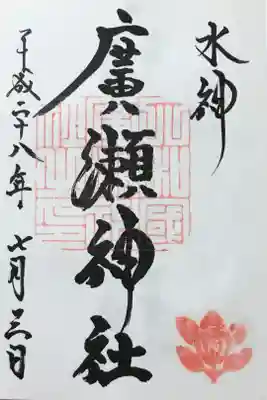 水神
廣瀬神社
平成二十八年七月三日